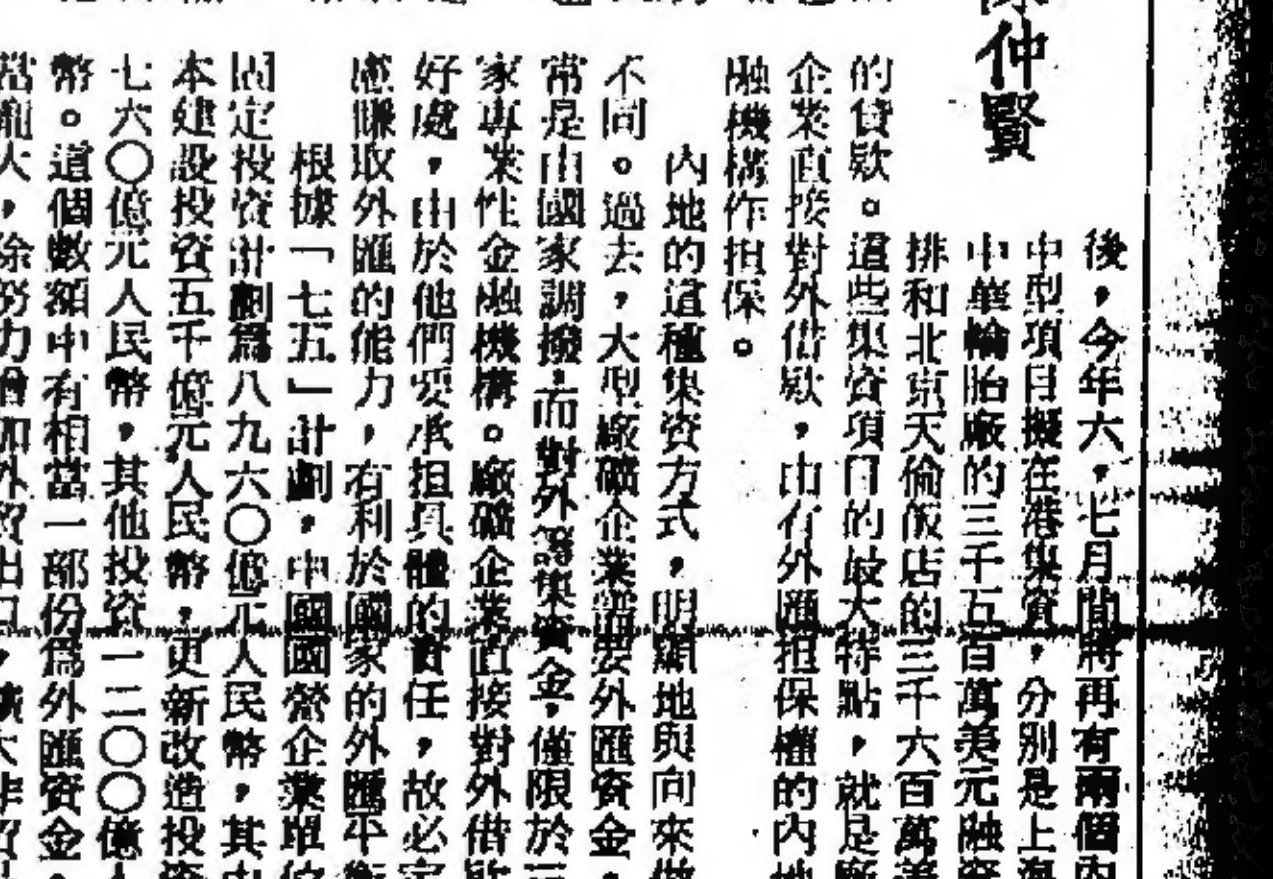 仲賢
後，今年六，七月間將再有兩個內
中型項目擬在港集資，分別是上海
中華輪胎廠的三千五百萬美元融資
排和北京天倫飯店的三千六百萬美
的貸款。這些集資項目的最大特點，就是廠
企業直接對外借款，由有外匯担保權的內地
融機構作担保。
內地的這種集資方式，明顯地與向來做
不同。過去，大型廠礦企業需要外匯資金，
常是由國家調撥，而對外籌集資金，僅限於
家專業性金融機構。廠礦企業直接對外借款
好處，由於他們要承担具體的責任，故必定
應賺取外匯的能力，有利於國家的外匯平衡
根據「七五」計劃，中國國營企業單位
固定投資計劃爲八九六〇億元人民幣，其中
本建設投資五千億元人民幣，更新改造投資
七六〇億元人民幣，其他投資一二〇〇億人
幣。這個數額中有相當一部份爲外匯資金，
當龐大，除努力增加外貿出口，擴大非貿